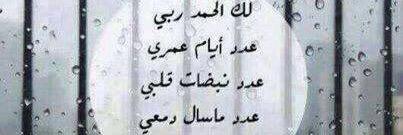 لك الحمد ربي
عدد أيام عمري
عدد نبضات قلبي
عدد ماسال دمعي